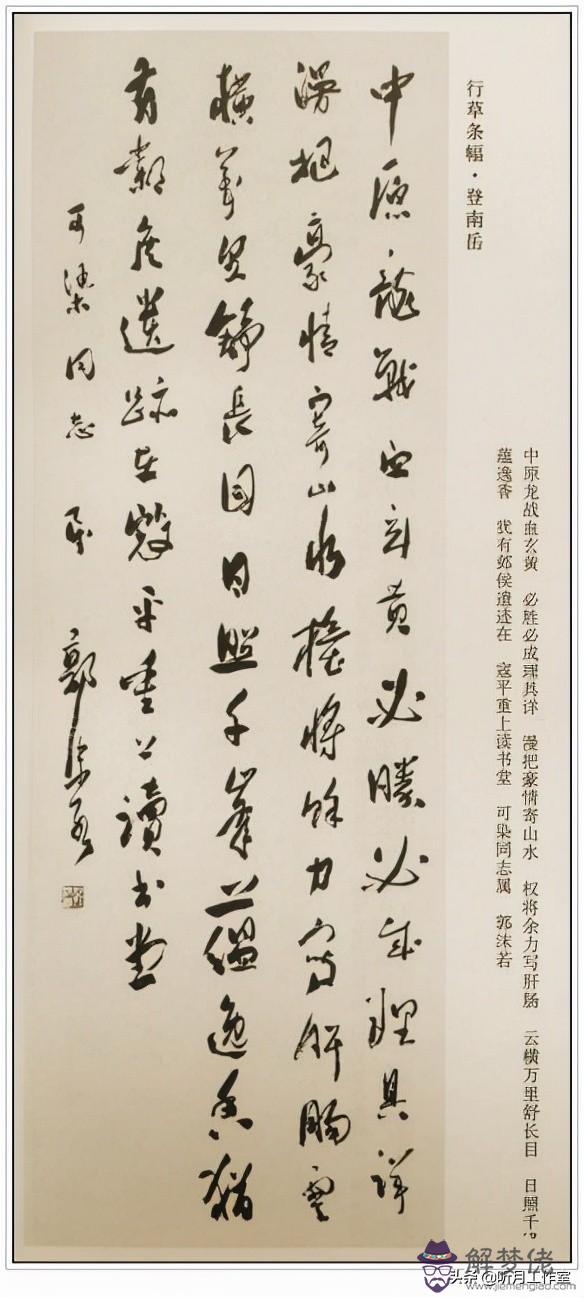 行草条幅·登南岳
中原龙战血玄黄 必胜必成理具详 漫把豪情寄山水 权将余力写肝肠 云横万里舒长目 日照千
蕴逸香 犹有邺侯遗迹在 寇平重上读书堂 可染同志属 郭沫若
中原龍戰血玄黄必勝必成理具詳
漫把豪情寄山水権將餘力寫肝腸雲
橫萬里舒長目日照千峯上蘊逸香猶
有鄴侯遺跡在寇平重上讀書堂
可染同志屬 郭沫若
解梦佬
头条@听月工作室
www.jiemenglao.com